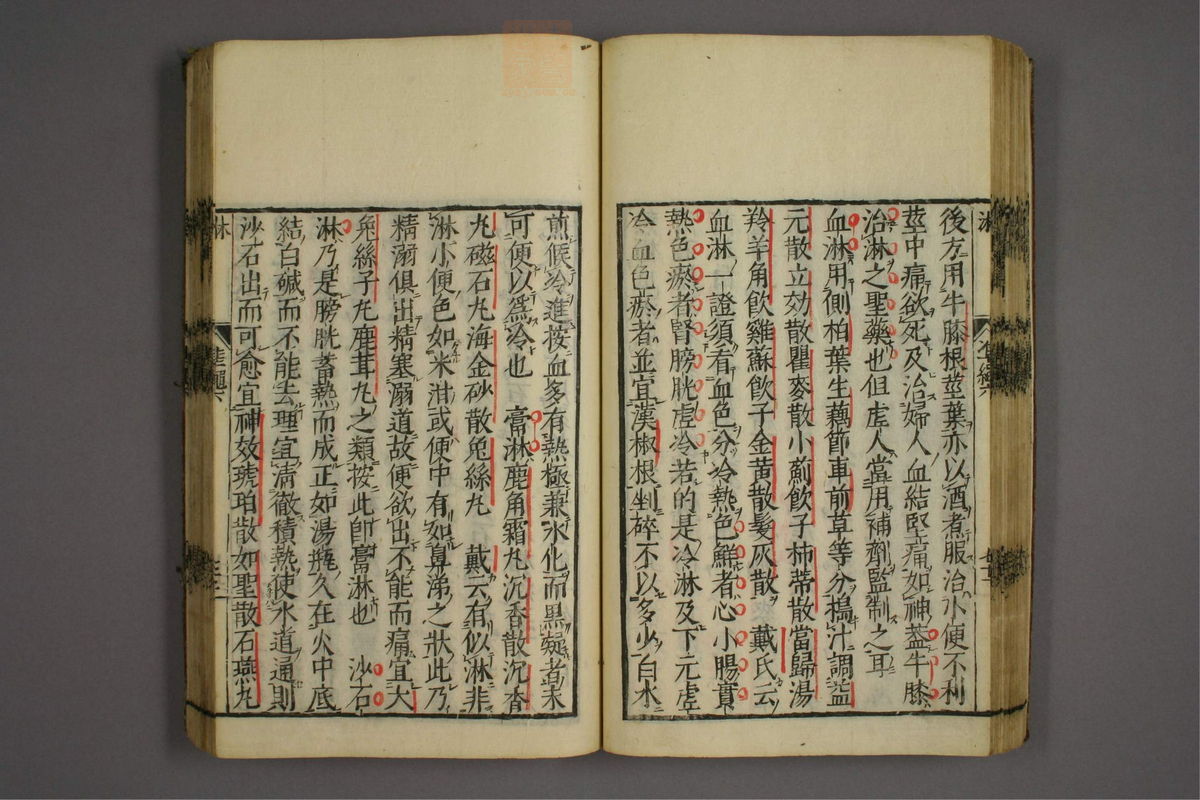 後方用牛膝根莖葉亦以酒煮服治小便不利
莖中痛欲死及治婦人血結堅痛如神蓋牛膝
治淋之聖藥也但虛人當用補劑監制之耳
血淋用側柏葉生藕節車前草等分搗汁調益
元散立効散瞿麥散小薊飲子柿蒂散當歸湯
羚羊角飲雞蘇飲子金黃散髮灰散 戴氏云
血淋一證須看血色分冷熱色鮮者心小腸實
熱色瘀者腎膀胱虛冷若的是冷淋及下元虛
冷血色瘀者並宜漢椒根剉碎不以多少白水
煎候冷進按血多有熱極兼水化而黑凝者未
可便以爲冷也 膏淋鹿角霜丸沉香散沉香
丸磁石丸海金砂散兔絲丸 戴云有似淋非
淋小便色如米泔或便中有如鼻涕之狀此乃
精溺俱出精塞溺道故便欲出不能而痛宜大
兔絲子丸鹿茸丸之類按此卽膏淋也 沙石
淋乃是膀胱蓄熱而成正如湯瓶久在火中底
結白碱而不能去理宜清徹積熱使水道通則
沙石出而可愈宜神效琥珀散如聖散石燕丸
淋